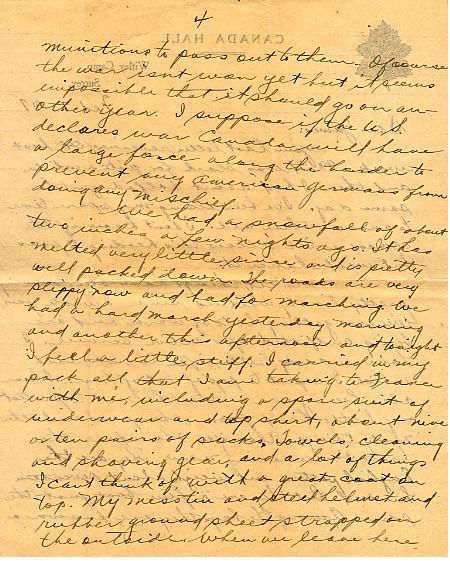 4
CANADA HALL
Witley Camp,
Surrey.
munitions to pass out to them. Of course
the war isnt won yet but it seems
impossible that it should go on an-
other year. I suppose if the U.S.
declares war Canada will have
a large force along the border to
prevent any American-Germans from
doing any mischief.
We had a snowfall of about
two inches a few nights ago. It has
melted very little since and is pretty
well packed down. The roads are very
slippy now and bad for marching. We
had a hard march yesterday morning
and another this afternoon and tonight
I feel a little stiff. I carried in my
pack all that I am taking to France
with me, including a spare suit of
underwear and top shirt, about nine
or ten pairs of socks, towels, cleaning
and shaving gear, and a lot of things
I cant think of, with a great coat on
top. My messtin and steel helmet and
rubber ground sheet strapped on
the outside. When we leave here